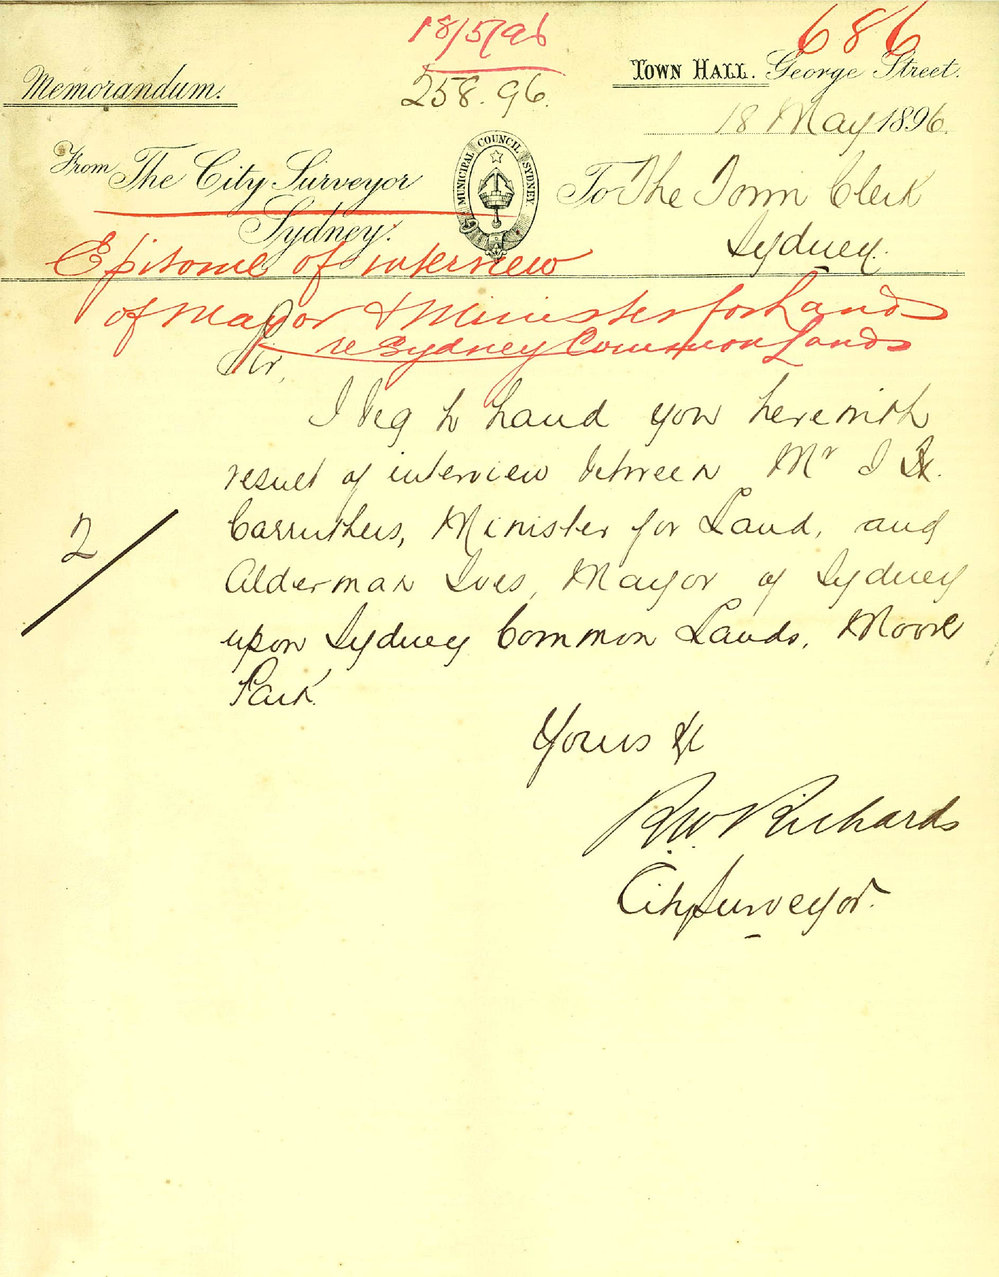 18/5/96
686
258.96.
Memorandum.
TOWN HALL. George Street.
18 May 1896.
From The City Surveyor
Sydney.
MUNICIPAL COUNCIL SYDNEY
To The Town Clerk
Sydney.
Epitome of interview
of Mayor & Minister for Lands
re Sydney Common Lands
Sir,
I beg to hand you herewith
result of interview between Mr J
Carruthers, Minister for Land, and
2/
Alderman Ives, Mayor of Sydney
upon Sydney Common Lands, Moore
Park.
Yours &c
R.W. Richards
City Surveyor.